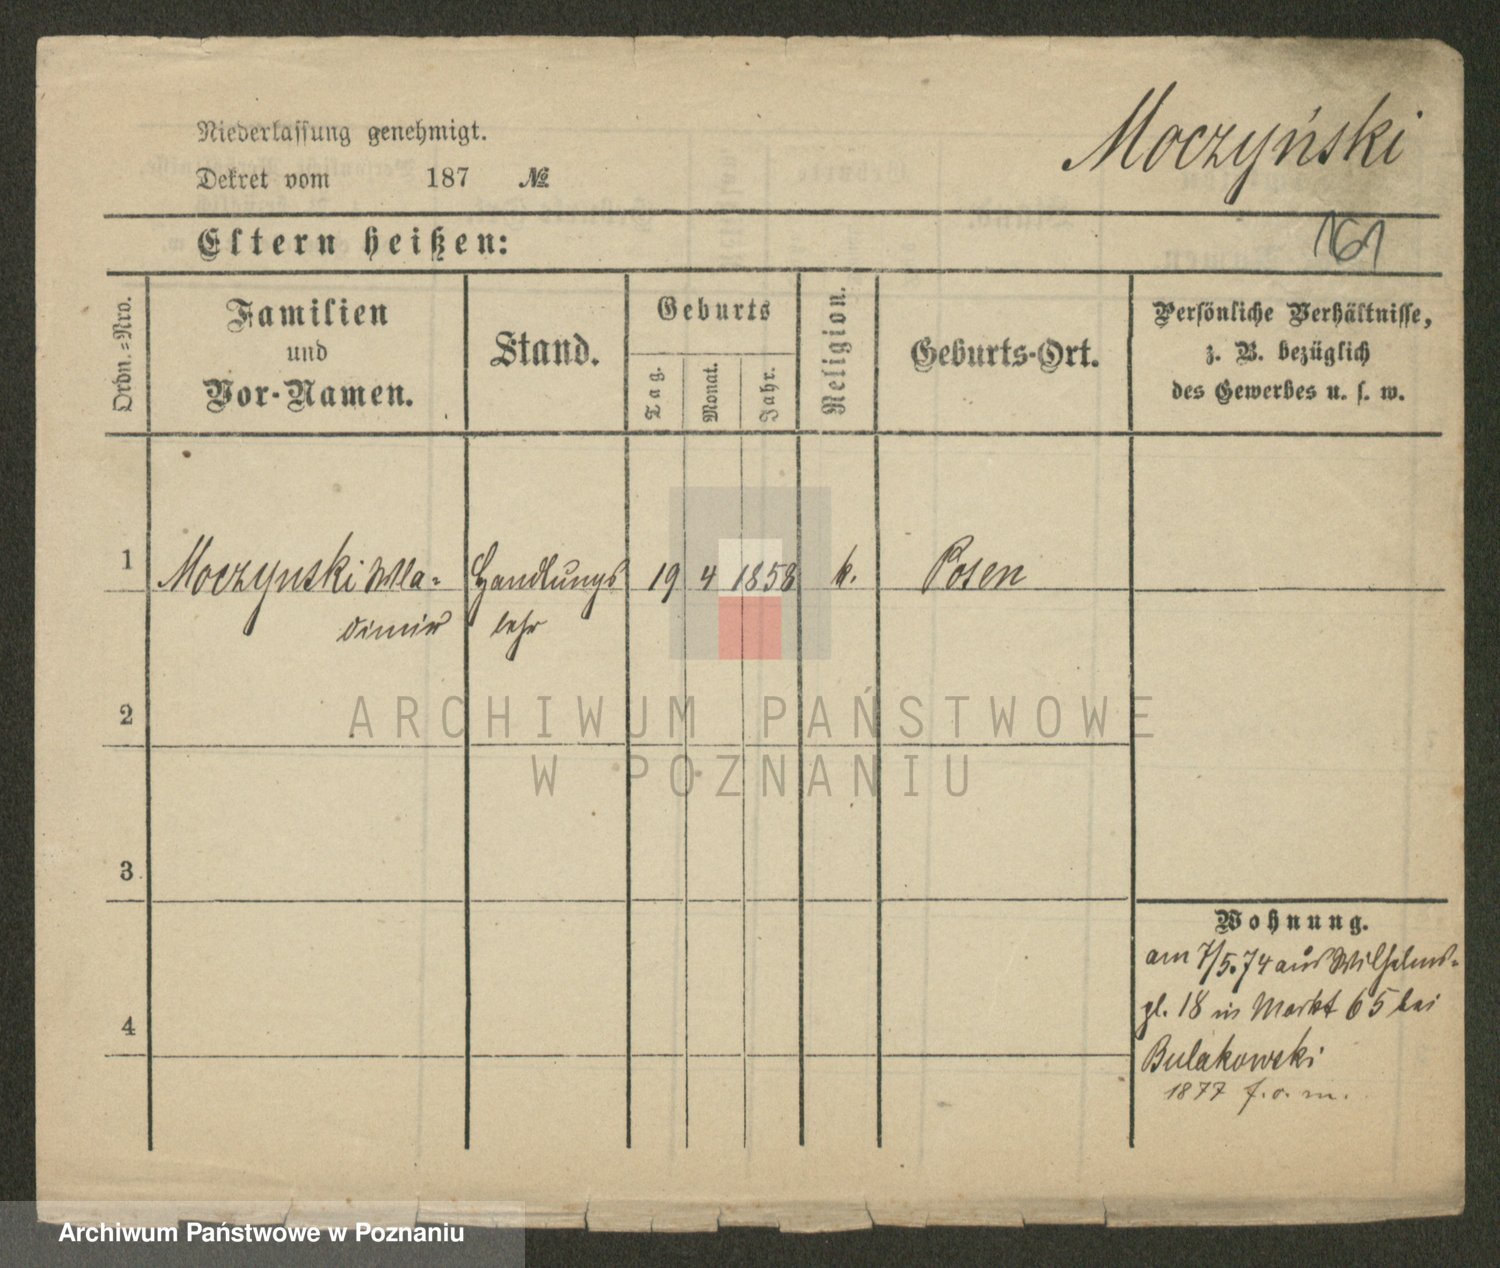 Moczyński
Niederlassung genehmigt.
Dekret vom 187 №
161
Eltern heißen:
Ordn.=Nro.
Familien
und
Vor-Namen.
Stand.
Geburts
Tag.
Monat.
Jahr.
Religion.
Geburts-Ort.
Persönliche Verhältnisse,
z. B. bezüglich
des Gewerbes u. s. w.
1 Moczynski Wla- Handlungs 19 4 1858 k. Posen
dimir lehr
2
ARCHIWUM PAŃSTWOWE
W POZNANIU
3
4
Wohnung.
am 7/5.74 aus Wilhelms-
pl. 18 in Markt 65 bei
Bulakowski
1877 f. o. m.
Archiwum Państwowe w Poznaniu